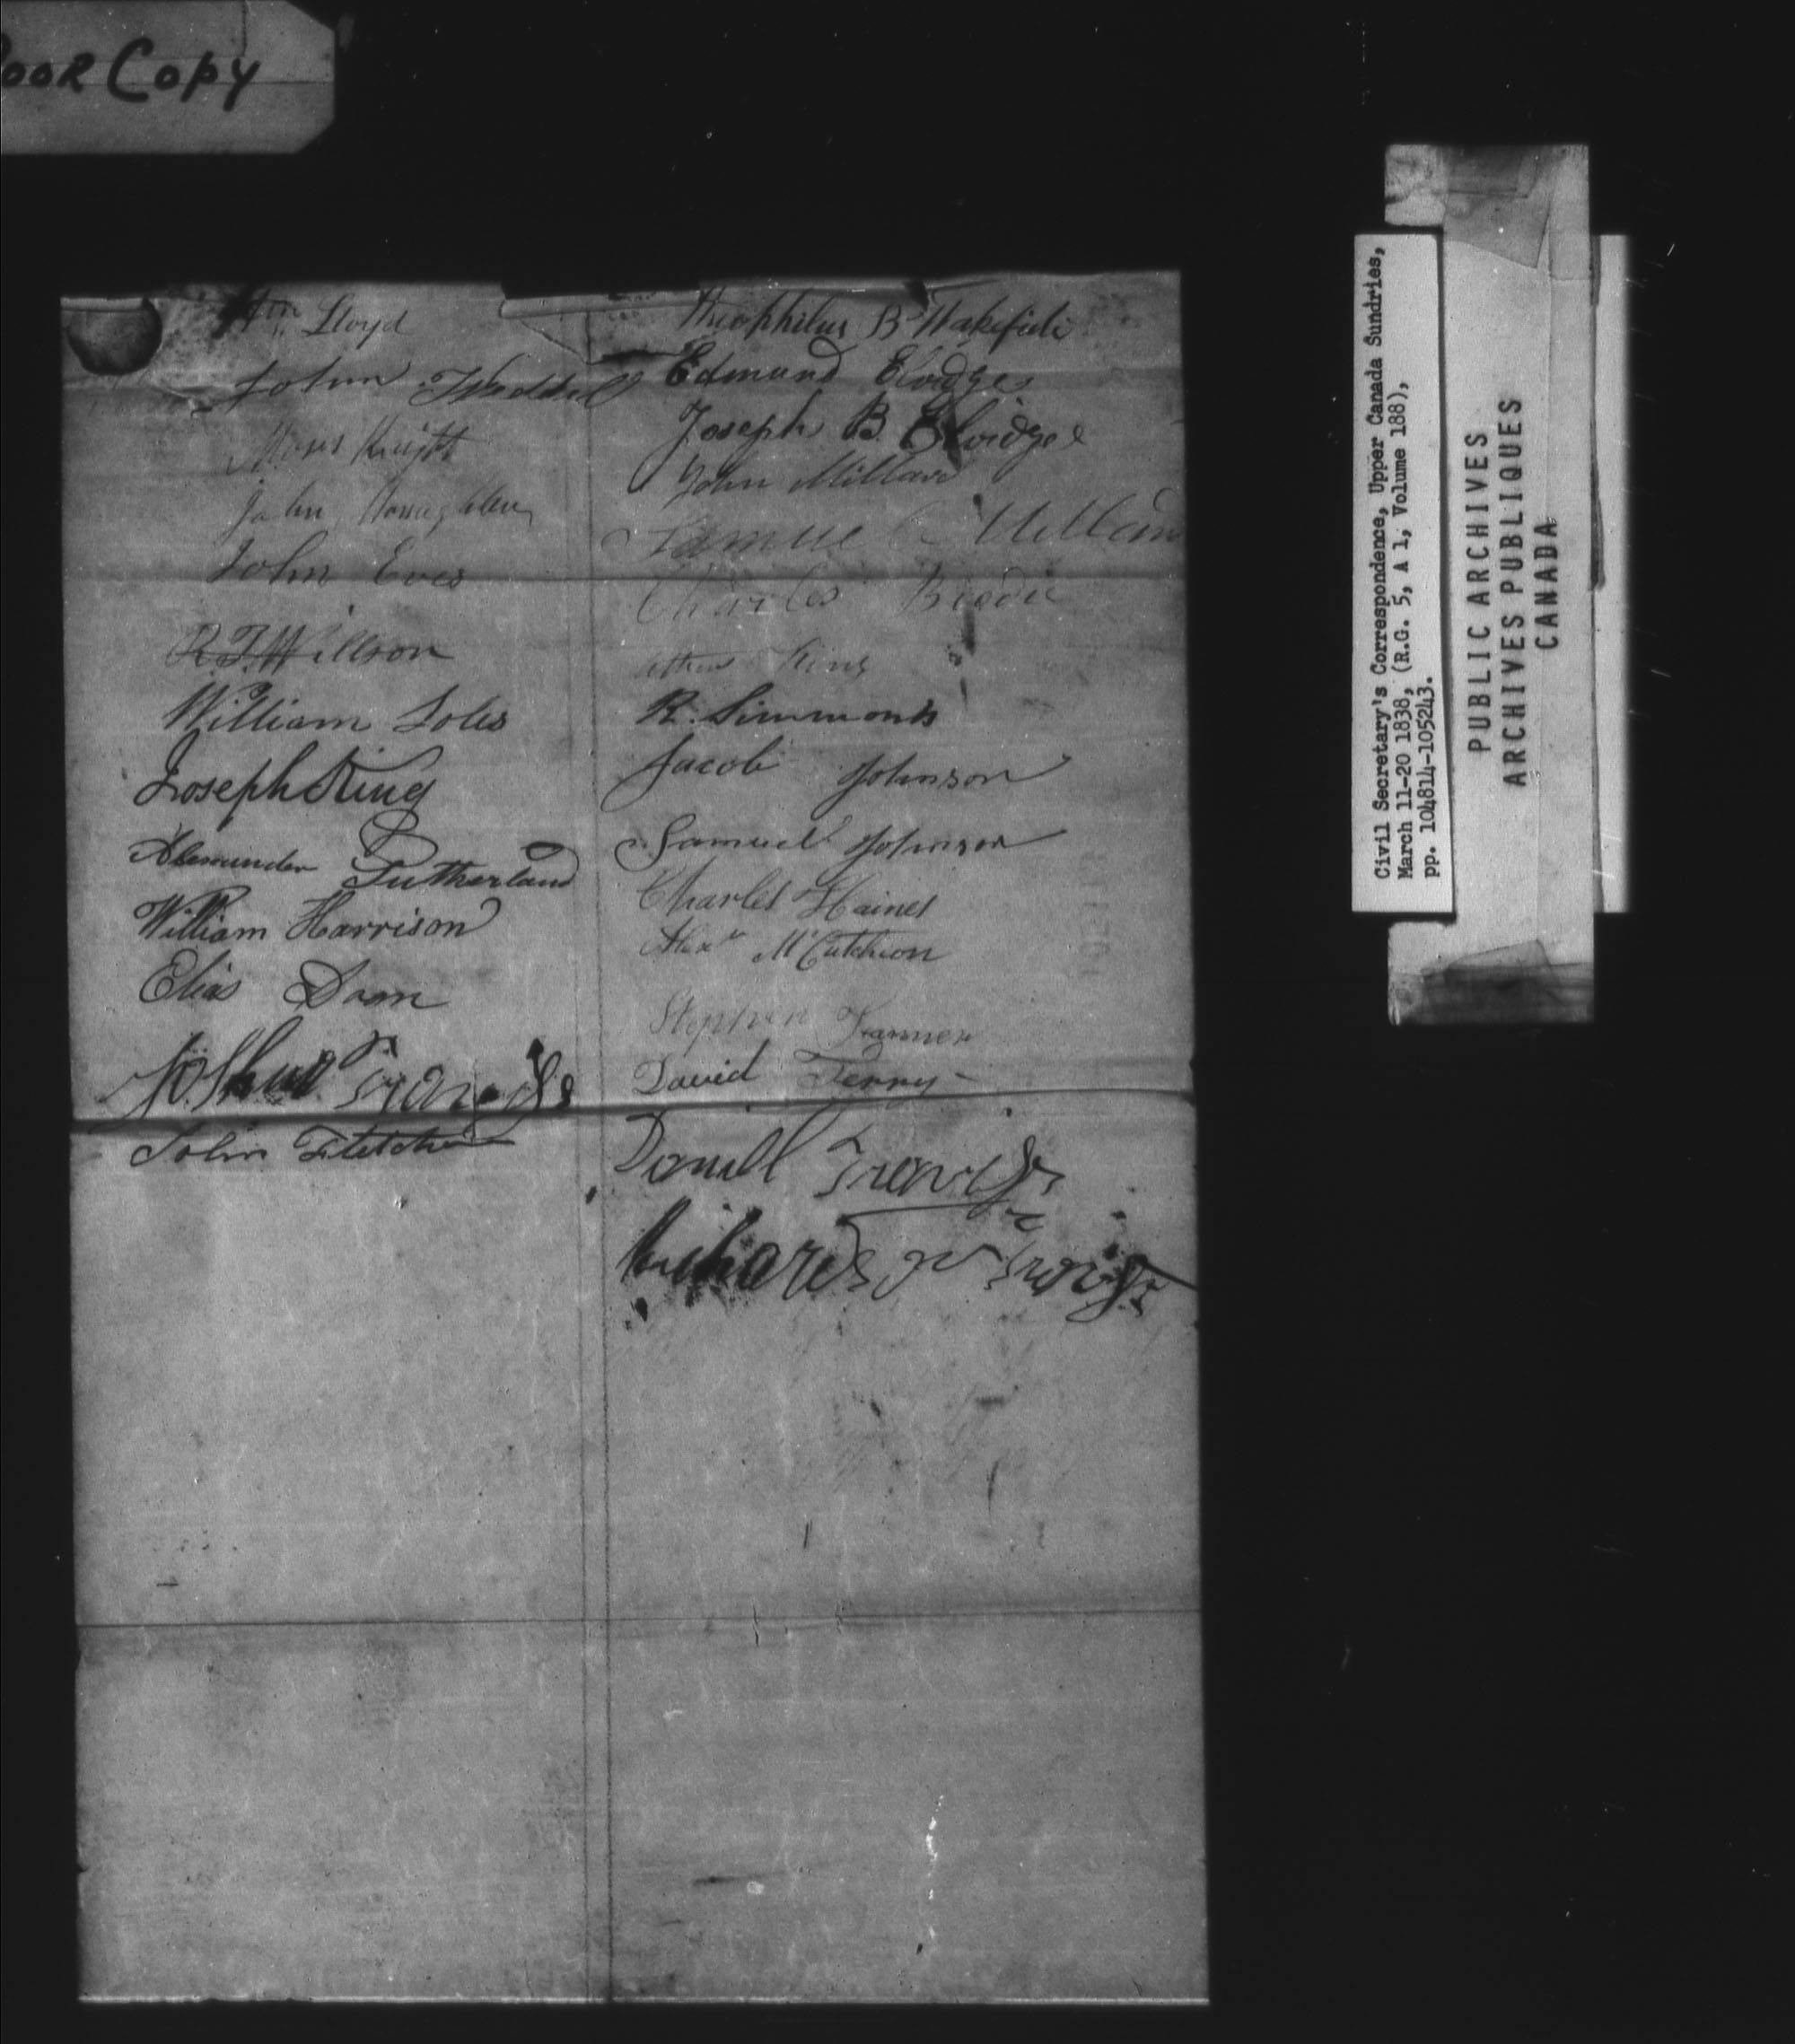 Poor Copy
Wm Lloyd
John Weddel
Moses Knight
John
John Eves
R. T. Willson
William Soles
Joseph King
Alexander Sutherland
William Harrison
Elias Doan
Joshua Traviss
John Fletcher
Theophilus B Wakefield
Edmund Elvidge
Joseph B. Elvidge
John Millard
Samuel
Charles Brodie
King
R. Simmonds
Jacob Johnson
Samuel Johnson
Charles Haines
Alexr McCutcheon
Stephen
David Terry
Daniell Traviss
Richard W Traviss
Civil Secretary's Correspondence, Upper Canada Sundries,
March 11-20 1838, (R.G. 5, A 1, Volume 188),
pp. 104814-105243.
PUBLIC ARCHIVES
ARCHIVES PUBLIQUES
CANADA